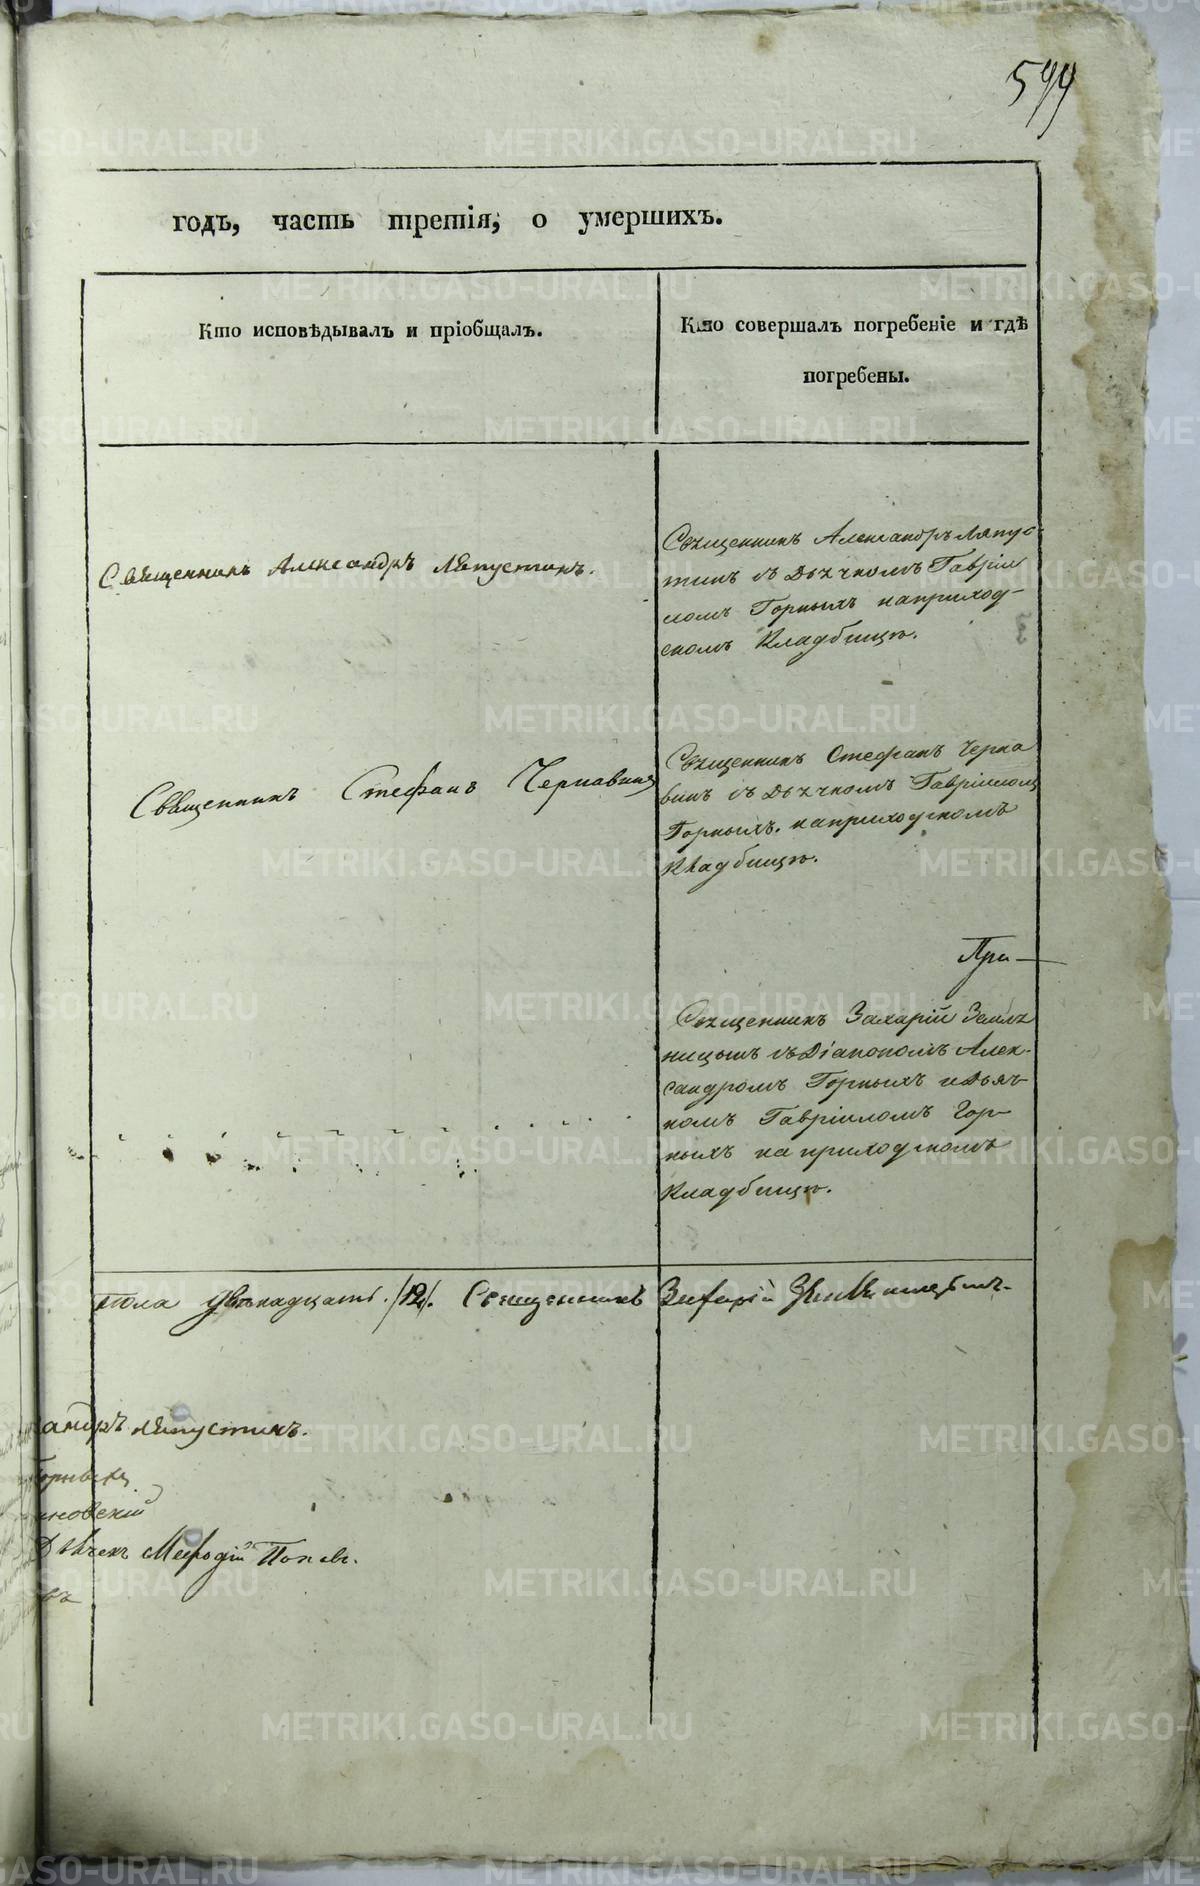 599
годъ, часть третія, о умершихъ.
Кто исповѣдывалъ и пріобщалъ.
Кто совершалъ погребеніе и гдѣ
погребены.
Священникъ Александръ Ляпустинъ.
Священникъ Александръ Ляпус-
тинъ съ Дьячкомъ Гаврiи
ломъ Горныхъ наприход-
скомъ Кладбищѣ.
Священникъ Стефанъ Чернавинъ
Священникъ Стефанъ Черна
винъ съ Дьячкомъ Гаврiиломъ
Горныхъ. наприходскомъ
Кладбищѣ.
При
Священникъ Захарій Земля
ницынъ съ Дiакономъ Алек-
сандромъ Горныхъ и Дьяч-
комъ Гаврiиломъ Гор-
ныхъ на приходскомъ
Кладбищѣ.
пола двѣнадцать. /12/. Священникъ Захарій Земляницынъ.
андръ Ляпустинъ.
Горныхъ
новскій
Дьячекъ Меѳодій Поповъ.
въ
METRIKI.GASO-URAL.RU